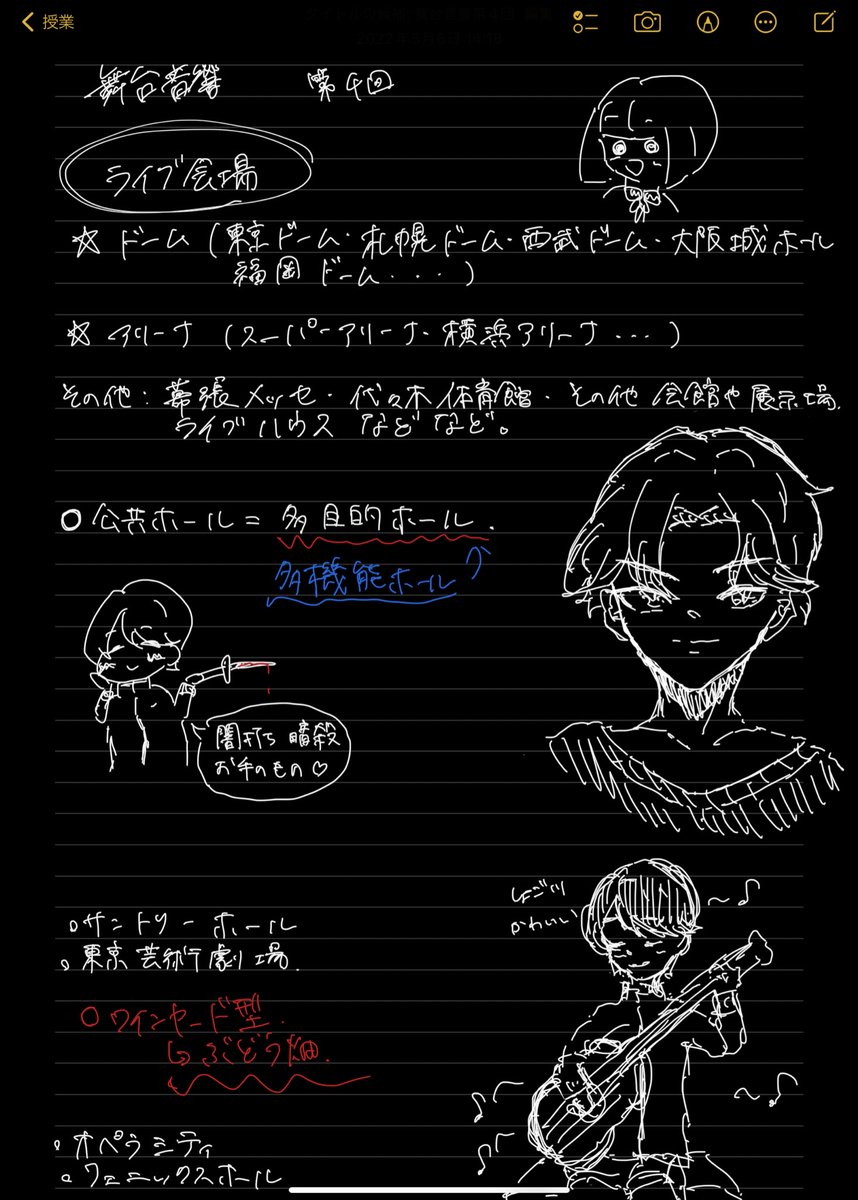 授業
舞台音響 第4回
ライブ会場
☆ ドーム (東京ドーム・札幌ドーム・西武ドーム・大阪城ホール
福岡ドーム・・・)
☆ アリーナ (スーパーアリーナ・横浜アリーナ・・・)
その他：幕張メッセ・代々木体育館・その他 会館や展示場.
ライブハウス などなど。
○ 公共ホール = 多目的ホール.
多機能ホール
闇打ち 暗殺
お手のもの♡
かわいい
。サントリーホール
。東京芸術劇場.
○ ワインヤード型.
↳ ぶどう畑.
。オペラシティ
。フェニックスホール